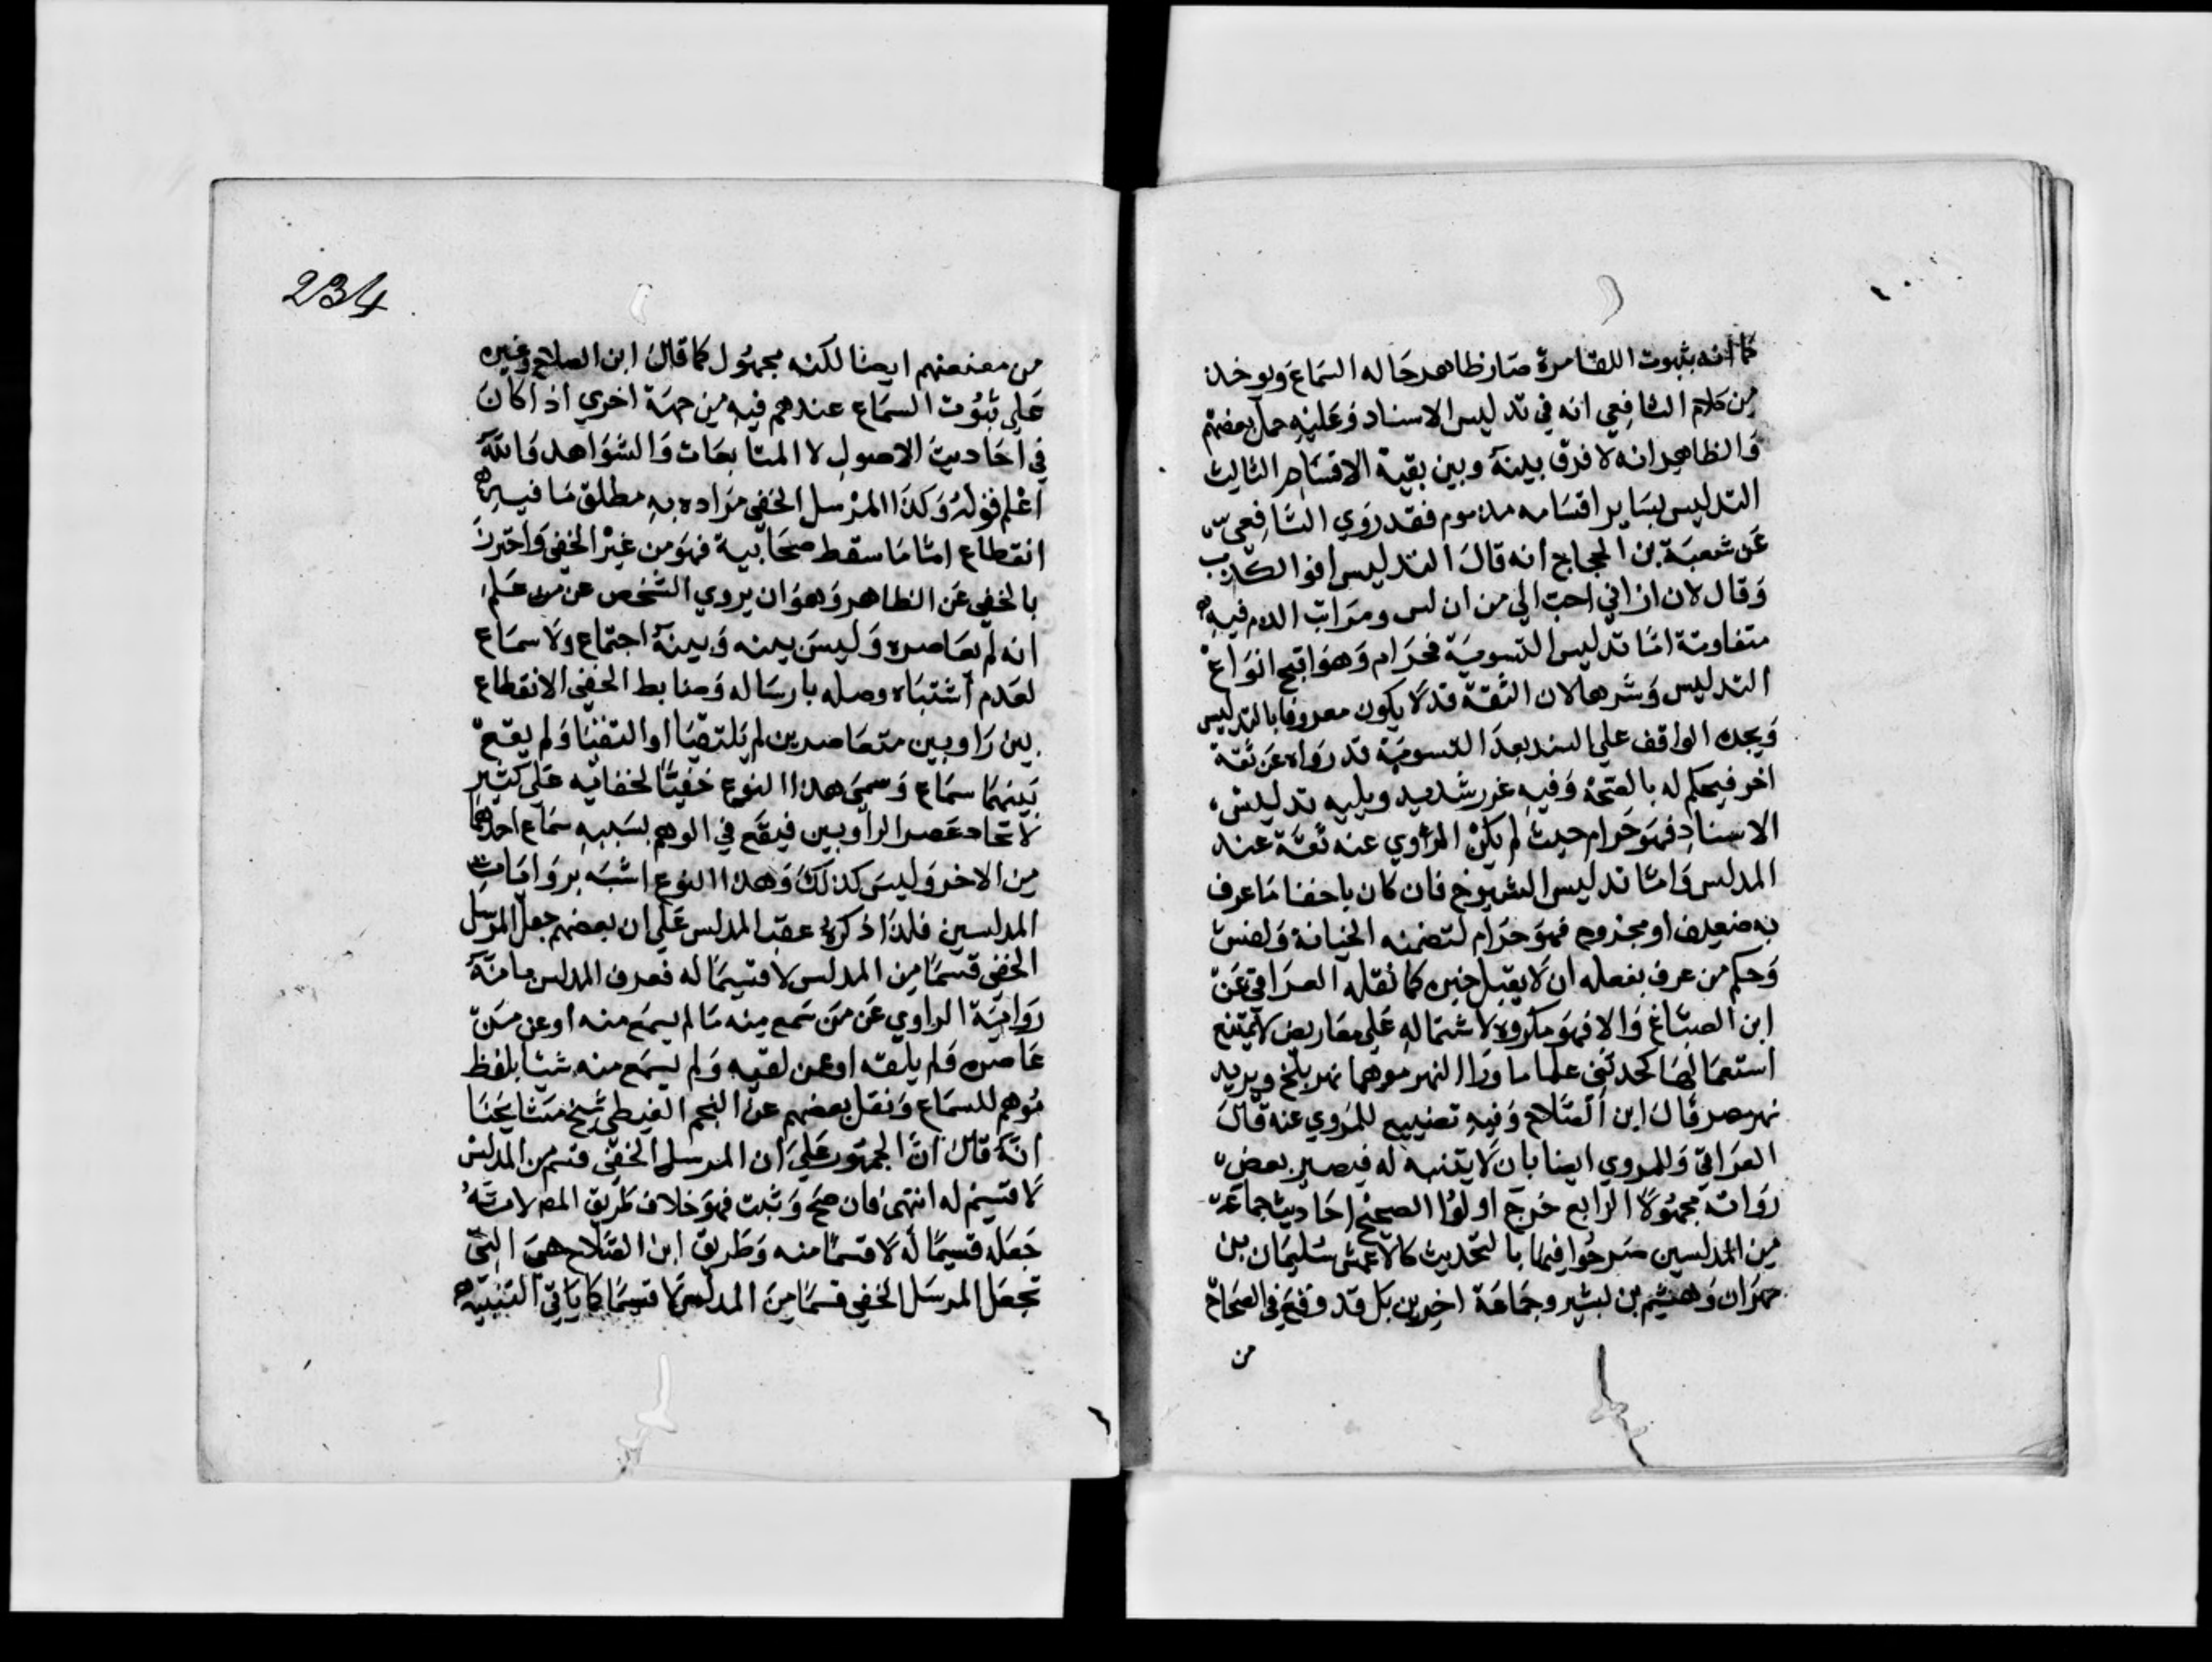 كما انه بثبوت اللقا مرة صار ظاهر حاله السماع ويوخذ
من كلام الشافعي انه في تدليس الاسناد وعليه حمل بعضهم
والظاهر انه لا فرق بينه وبين بقية الاقسام الثالث
التدليس بساير اقسامه مذموم فقد روي الشافعي
عن شعبة بن الحجاج انه قال التدليس اخو الكذب
وقال لان ازاني احب الي من ان ادلس ومراتب الذم فيه
متفاوتة امّا تدليس التسوية فحرام وهو اقبح انواع
التدليس وشرها لان الثقة قد لا يكون معروفا بالتدليس
ويجده الواقف علي السند بعد التسوية قد رواه عن ثقة
اخر فيحكم له بالصّحة وفيه غرر شديد ويليه تدليس
الاسناد فهو حرام حيث لم يكن المروي عنه ثقة عند
المدلس وامّا تدليس الشيوخ فان كان باخفا ما عرف
به ضعيف او مجروح فهو حرام لتضمنه الخيانة والغش
وحكم من عرف بفعله ان لا يقبل خبره كما نقله العراقي عن
ابن الصباغ والا فهو مكروه لاشتماله علي معاريض لا يمتنع
استعمالها كحدثني علما ما ورا النهر موهما نهر بلخ ويريد
نهر مصر قال ابن الصّلاح وفيه تضييع للمروي عنه قال
العراقي وللمروي ايضا بان لا يتنبه له فيصير بعض
رواته مجهولا الرابع خرّج اولوا الصحيح احاديث جماعة
من المدلسين صرحوا فيها بالتحديث كالاعمش سليمان بن
مهران وهشيم بن بشير وجماعة اخرين بل قد وقع في الصحاح
من
234
من معنعنهم ايضا لكنه محمول كما قال ابن الصلاح وغيره
علي ثبوت السماع عندهم فيه من جهة اخري اذا كان
في احاديث الاصول لا المتابعات والشواهد والله
اعلم قوله وكذا المرسل الخفي مراده به مطلق ما فيه
انقطاع امّا ما سقط صحابيه فهو من غير الخفي واحترز
بالخفي عن الظاهر وهو ان يروي الشخص عن من علم
انه لم يعاصره وليس بينه وبينه اجتماع ولا سماع
لعدم اشتباه وصله بارساله وضابط الخفي الانقطاع
بين راويين متعاصرين لم يلتقيا او التقيا ولم يقع
بينهما سماع وسمي هذا النوع خفيّا لخفايه علي كثير
لاتحاد عصر الراويين فيقع في الوهم بسببه سماع احدهما
من الاخر وليس كذلك وهذا النوع اشبه بروايات
المدلسين فلذا ذكره عقب المدلس علي ان بعضهم جعل المرسل
الخفي قسمًا من المدلس لا قسيمًا له فعرف المدلس بانه
رواية الراوي عن من سمع منه ما لم يسمع منه او عن من
عاصره ولم يلقه او عن لقيه ولم يسمع منه شيئا بلفظ
موهم للسماع ونقل بعضهم عن النجم الغيطي شيخ مشايخنا
انّه قال انّ الجمهور علي ان المرسل الخفي قسم من المدلس
لا قسيم له انتهي فان صحّ وثبت فهو خلاف طريق المص لانّه
جعله قسيمًا له لا قسمًا منه وطريق ابن الصّلاح هي التي
تجعل المرسل الخفي قسمًا من المدلس لا قسيمًا كما ياتي التنبيه